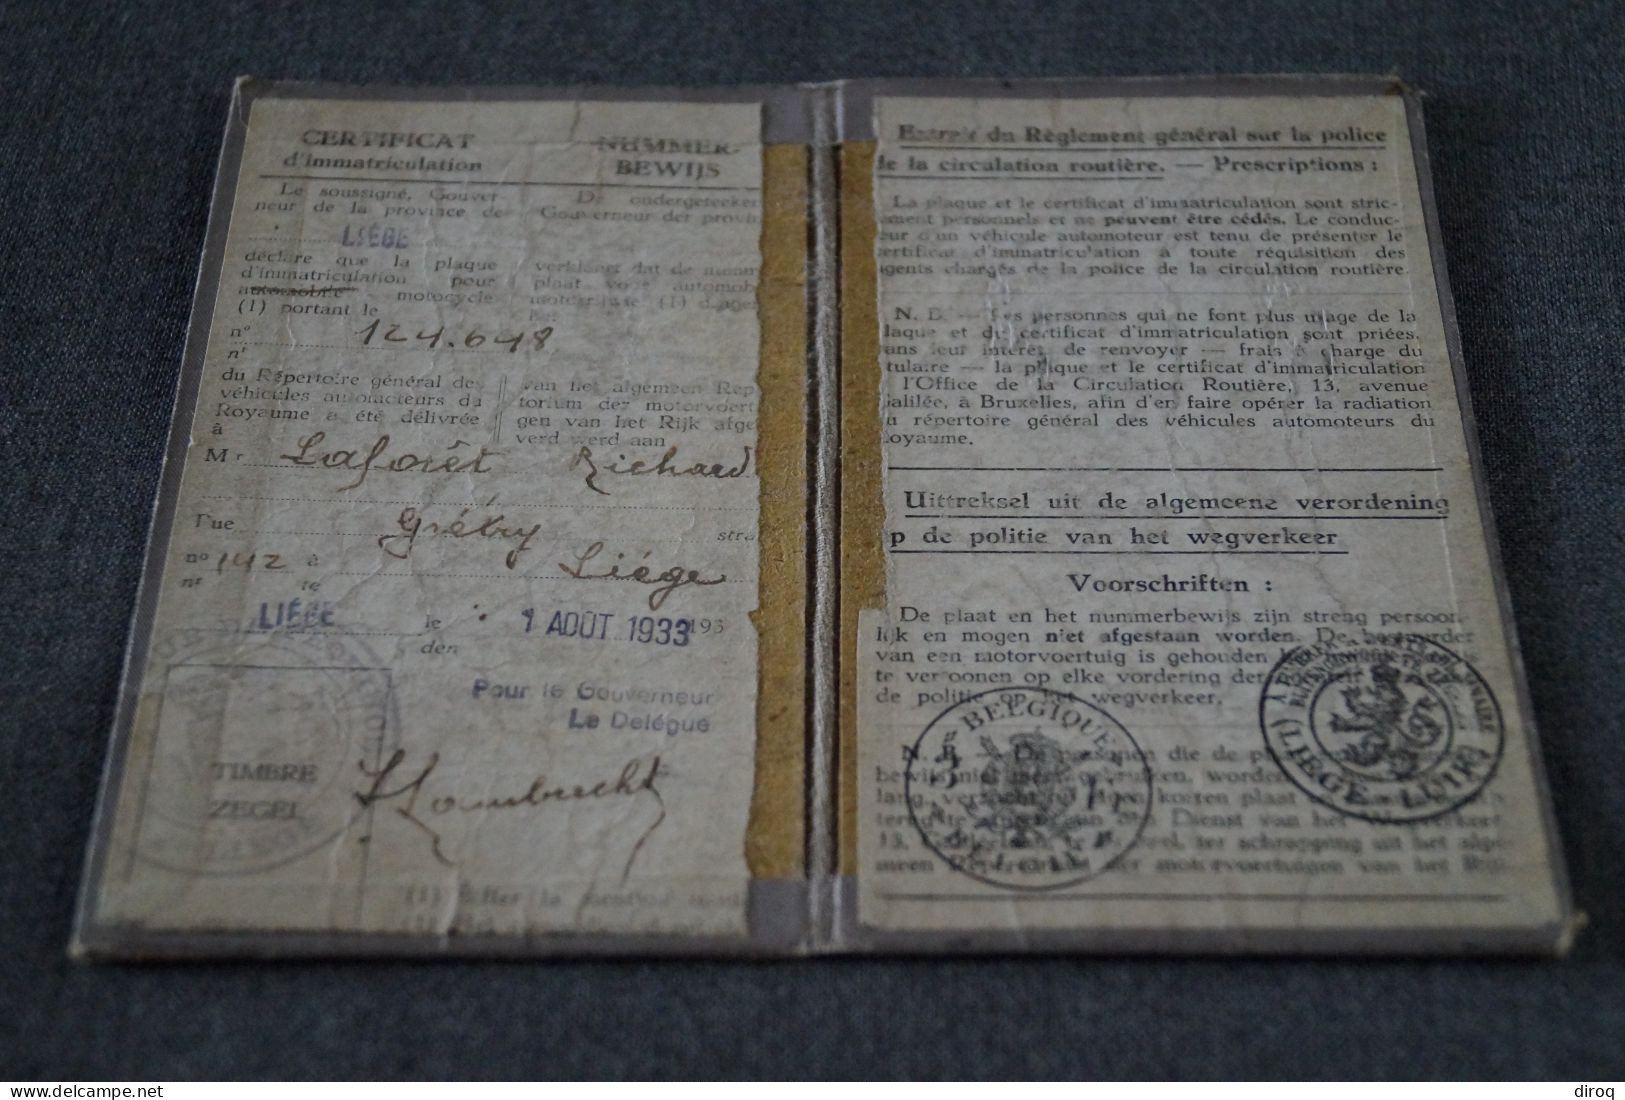 CERTIFICAT
d'immatriculation
NUMMER-
BEWIJS
Le soussigné, Gouver-
neur de la province de
LIÉGE
déclare que la plaque
d'immatriculation pour
automobile - motocycle
(1) portant le
De ondergeteeken
Gouverneur der provin
verklaart dat de numm
plaat voor automobi
het
nº 124.648
nr
du Répertoire général des
véhicules automoteurs du
Royaume a été délivrée
à
van het algemeen Rep
torium der motorvoert
gen van het Rijk afge
verd werd aan
Mr Laforêt Richard
rue Grétry stra
nº 142 à Liége
nr te
LIÉGE le 1 AOÛT 1933 193
den
Pour le Gouverneur
Le Délégué
TIMBRE
ZEGEL
Lambrecht
(1) Biffer la mention
Extrait du Règlement général sur la police
de la circulation routière. — Prescriptions :
La plaque et le certificat d'immatriculation sont stric-
ement personnels et ne peuvent être cédés. Le conduc-
eur d'un véhicule automoteur est tenu de présenter le
ertificat d'immatriculation à toute réquisition des
agents chargés de la police de la circulation routière.
N. B. — Les personnes qui ne font plus usage de la
laque et du certificat d'immatriculation sont priées,
ans leur intérêt de renvoyer — frais à charge du
tulaire — la plaque et le certificat d'immatriculation
l'Office de la Circulation Routière, 13, avenue
alilée, à Bruxelles, afin d'en faire opérer la radiation
u répertoire général des véhicules automoteurs du
oyaume.
Uittreksel uit de algemeene verordening
p de politie van het wegverkeer
Voorschriften :
De plaat en het nummerbewijs zijn streng persoon-
lijk en mogen niet afgestaan worden. De bestuurder
van een motorvoertuig is gehouden
te vertoonen op elke vordering der
de politie op het wegverkeer.
N. B. De personen die de pl
bewijs niet meer gebruiken, worden
lang, verzocht op hun kosten plaat
terug te den Dienst van het Wegverkeer
13, ter schrapping uit het alge
meen Repertorium der motorvoertuigen van het Rijk
BELGIQUE
LIEGE - LUIK
delcampe.net
diroq